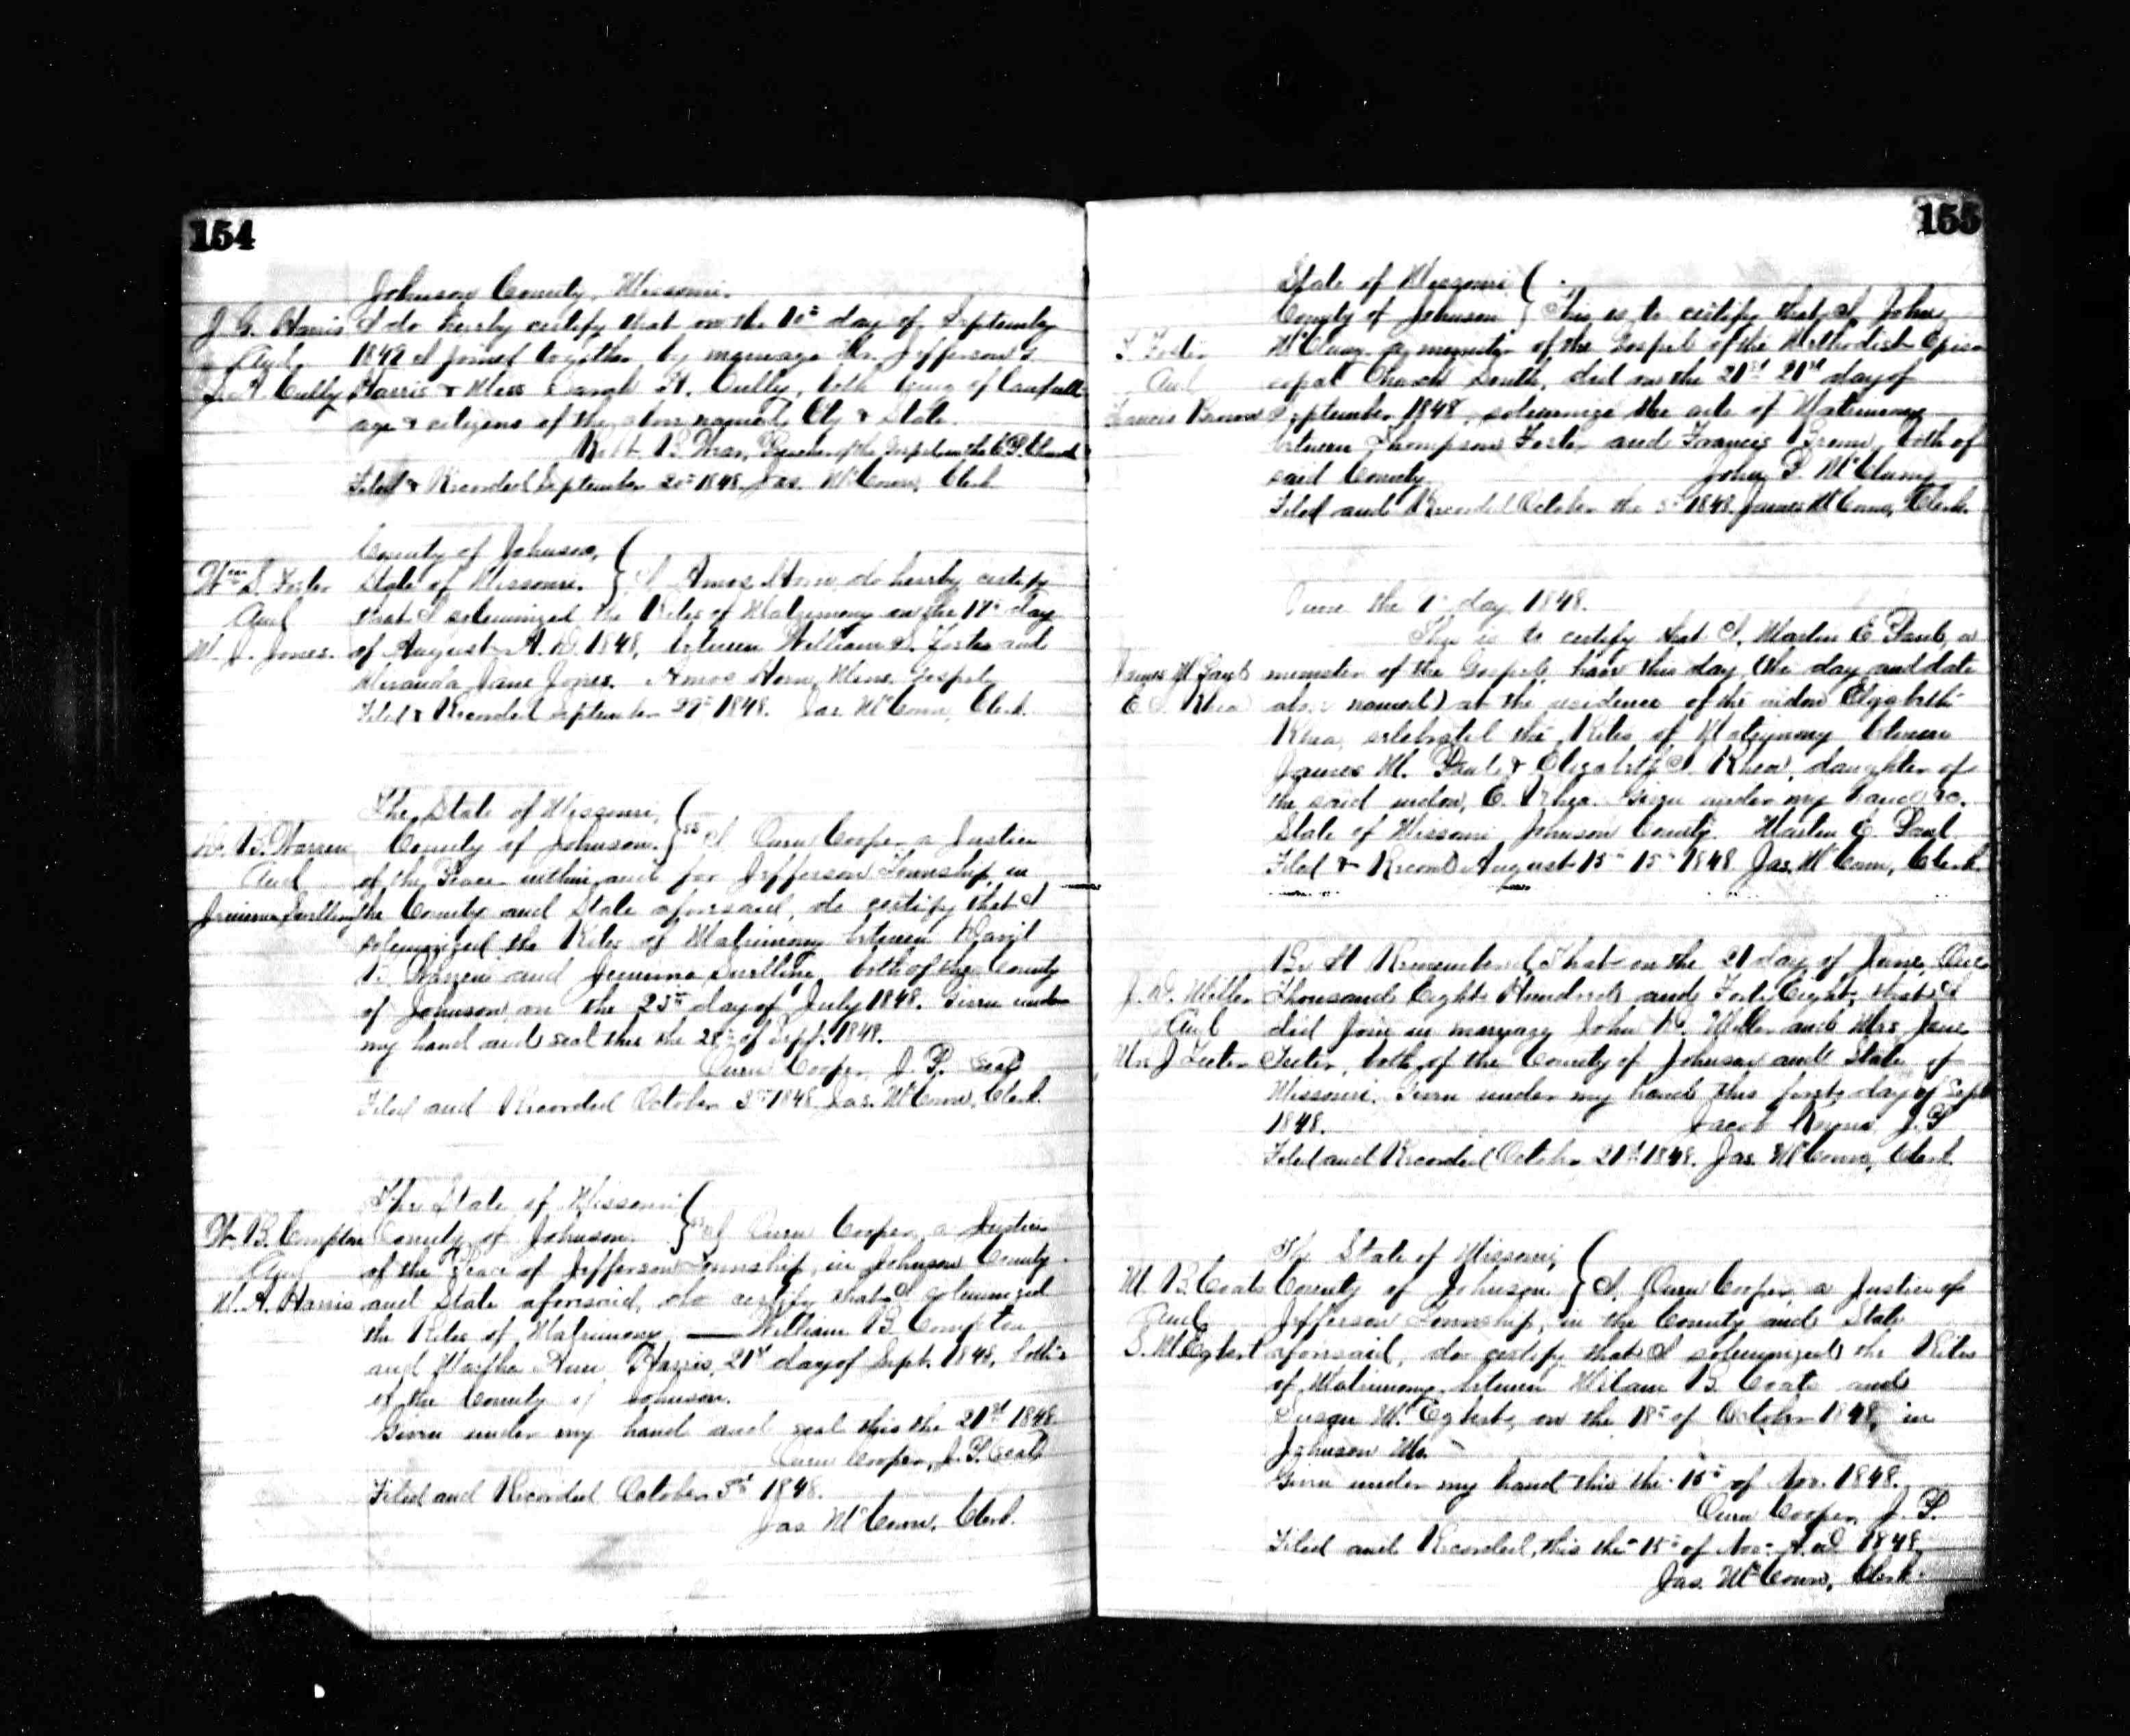 154
Johnson County, Missouri.
J. G. Harris I do hereby certify that on the 10th day of September
And 1848 I joined together by marriage Mr. Jefferson G.
S. A. Cully Harris & Miss Sarah A. Cully, both being of lawfull
age & citizens of the above named Cty & State.
Robt. B. Preacher of the Gospel in the C.P. Church
Filed & Recorded September 20th 1848. Jas. McCown, Clerk
County of Johnson,
Wm S. Foster State of Missouri. } I Amos Horn do hereby certify
And that I solemnized the Rites of Matrimony on the 17th day
M. J. Jones. of August A.D. 1848, between William S. Foster and
Miranda Jane Jones. Amos Horn, Mins. Gospel
Filed & Recorded September 29th 1848. Jas. McCown, Clerk.
The State of Missouri,
D. B. Warren County of Johnson. } ss I Owen Cooper a Justice
And of the Peace within and for Jefferson Township, in
Jemima the County and State aforesaid, do certify that I
solemnized the Rites of Matrimony between David
B. Warren and Jemima both of the County
of Johnson, on the 25th day of July 1848. Given under
my hand and seal this the 28th of Sept. 1848.
Owen Cooper J. P. Seal
Filed and Recorded October 3rd 1848 Jas. McCown, Clerk.
The State of Missouri
W. B. Compton County of Johnson. } ss I Owen Cooper, a Justice
And of the Peace of Jefferson Township, in Johnson County
M. A. Harris and State aforesaid, do certify that I solemnized
the Rites of Matrimony — William B. Compton
and Martha Ann Harris, 21st day of Sept. 1848, both
of the County of Johnson.
Given under my hand and seal this the 21st 1848
Owen Cooper, J. P. Seal
Filed and Recorded October 3rd 1848.
Jas. McCown, Clerk.
155
State of Missouri
County of Johnson } This is to certify that I John
T. Foster McClung a menister of the Gospel of the Methodist Epis-
And copal Church South, did on the 21st 21st day of
Francis Brown September 1848, solemnize the rite of Matrimony
between Thompson Foster and Francis Brown, both of
said County. John P. McClung
Filed and Recorded October the 1848. James McCown, Clerk.
June the 1st day 1848.
This is to certify that I, Martin E. Paul, a
James M. Paul menester of the Gospel, have this day (the day and date
E. Rhea above named) at the residence of the widow Elizabeth
Rhea, celebrated the Rites of Matrimony between
James M. Paul & Elizabeth Rhea, daughter of
the said widow, E. Rhea. Given under my hand &c.
State of Missouri Johnson County. Martin E. Paul
Filed & Record August 15th 15th 1848 Jas. McCown, Clerk.
Be It Remembered That on the 21 day of June, One
J. D. Miller Thousand Eight Hundred and Forty Eight, that I
And did join in marriage John D. Miller and Mrs. Jane
Mrs J Teeter Teeter, both of the County of Johnson and State of
Missouri. Given under my hand this first day of Sept
1848. Jacob J. P
Filed and Recorded October 21st 1848. Jas. McCown, Clerk.
The State of Missouri,
M. B. Coats County of Johnson } I, Owen Cooper, a Justice of
And Jefferson Township, in the County and State
S. M Egbert aforesaid, do certify that I solemnized the Rites
of Matrimony between B. Coats and
Susan M. Egbert, on the 18th of October 1848, in
Johnson Mo.
Given under my hand this the 15th of Nov. 1848.
Owen Cooper, J. P.
Filed and Recorded, this the 15th of Nov. A. D 1848
Jas. McCown, Clerk.